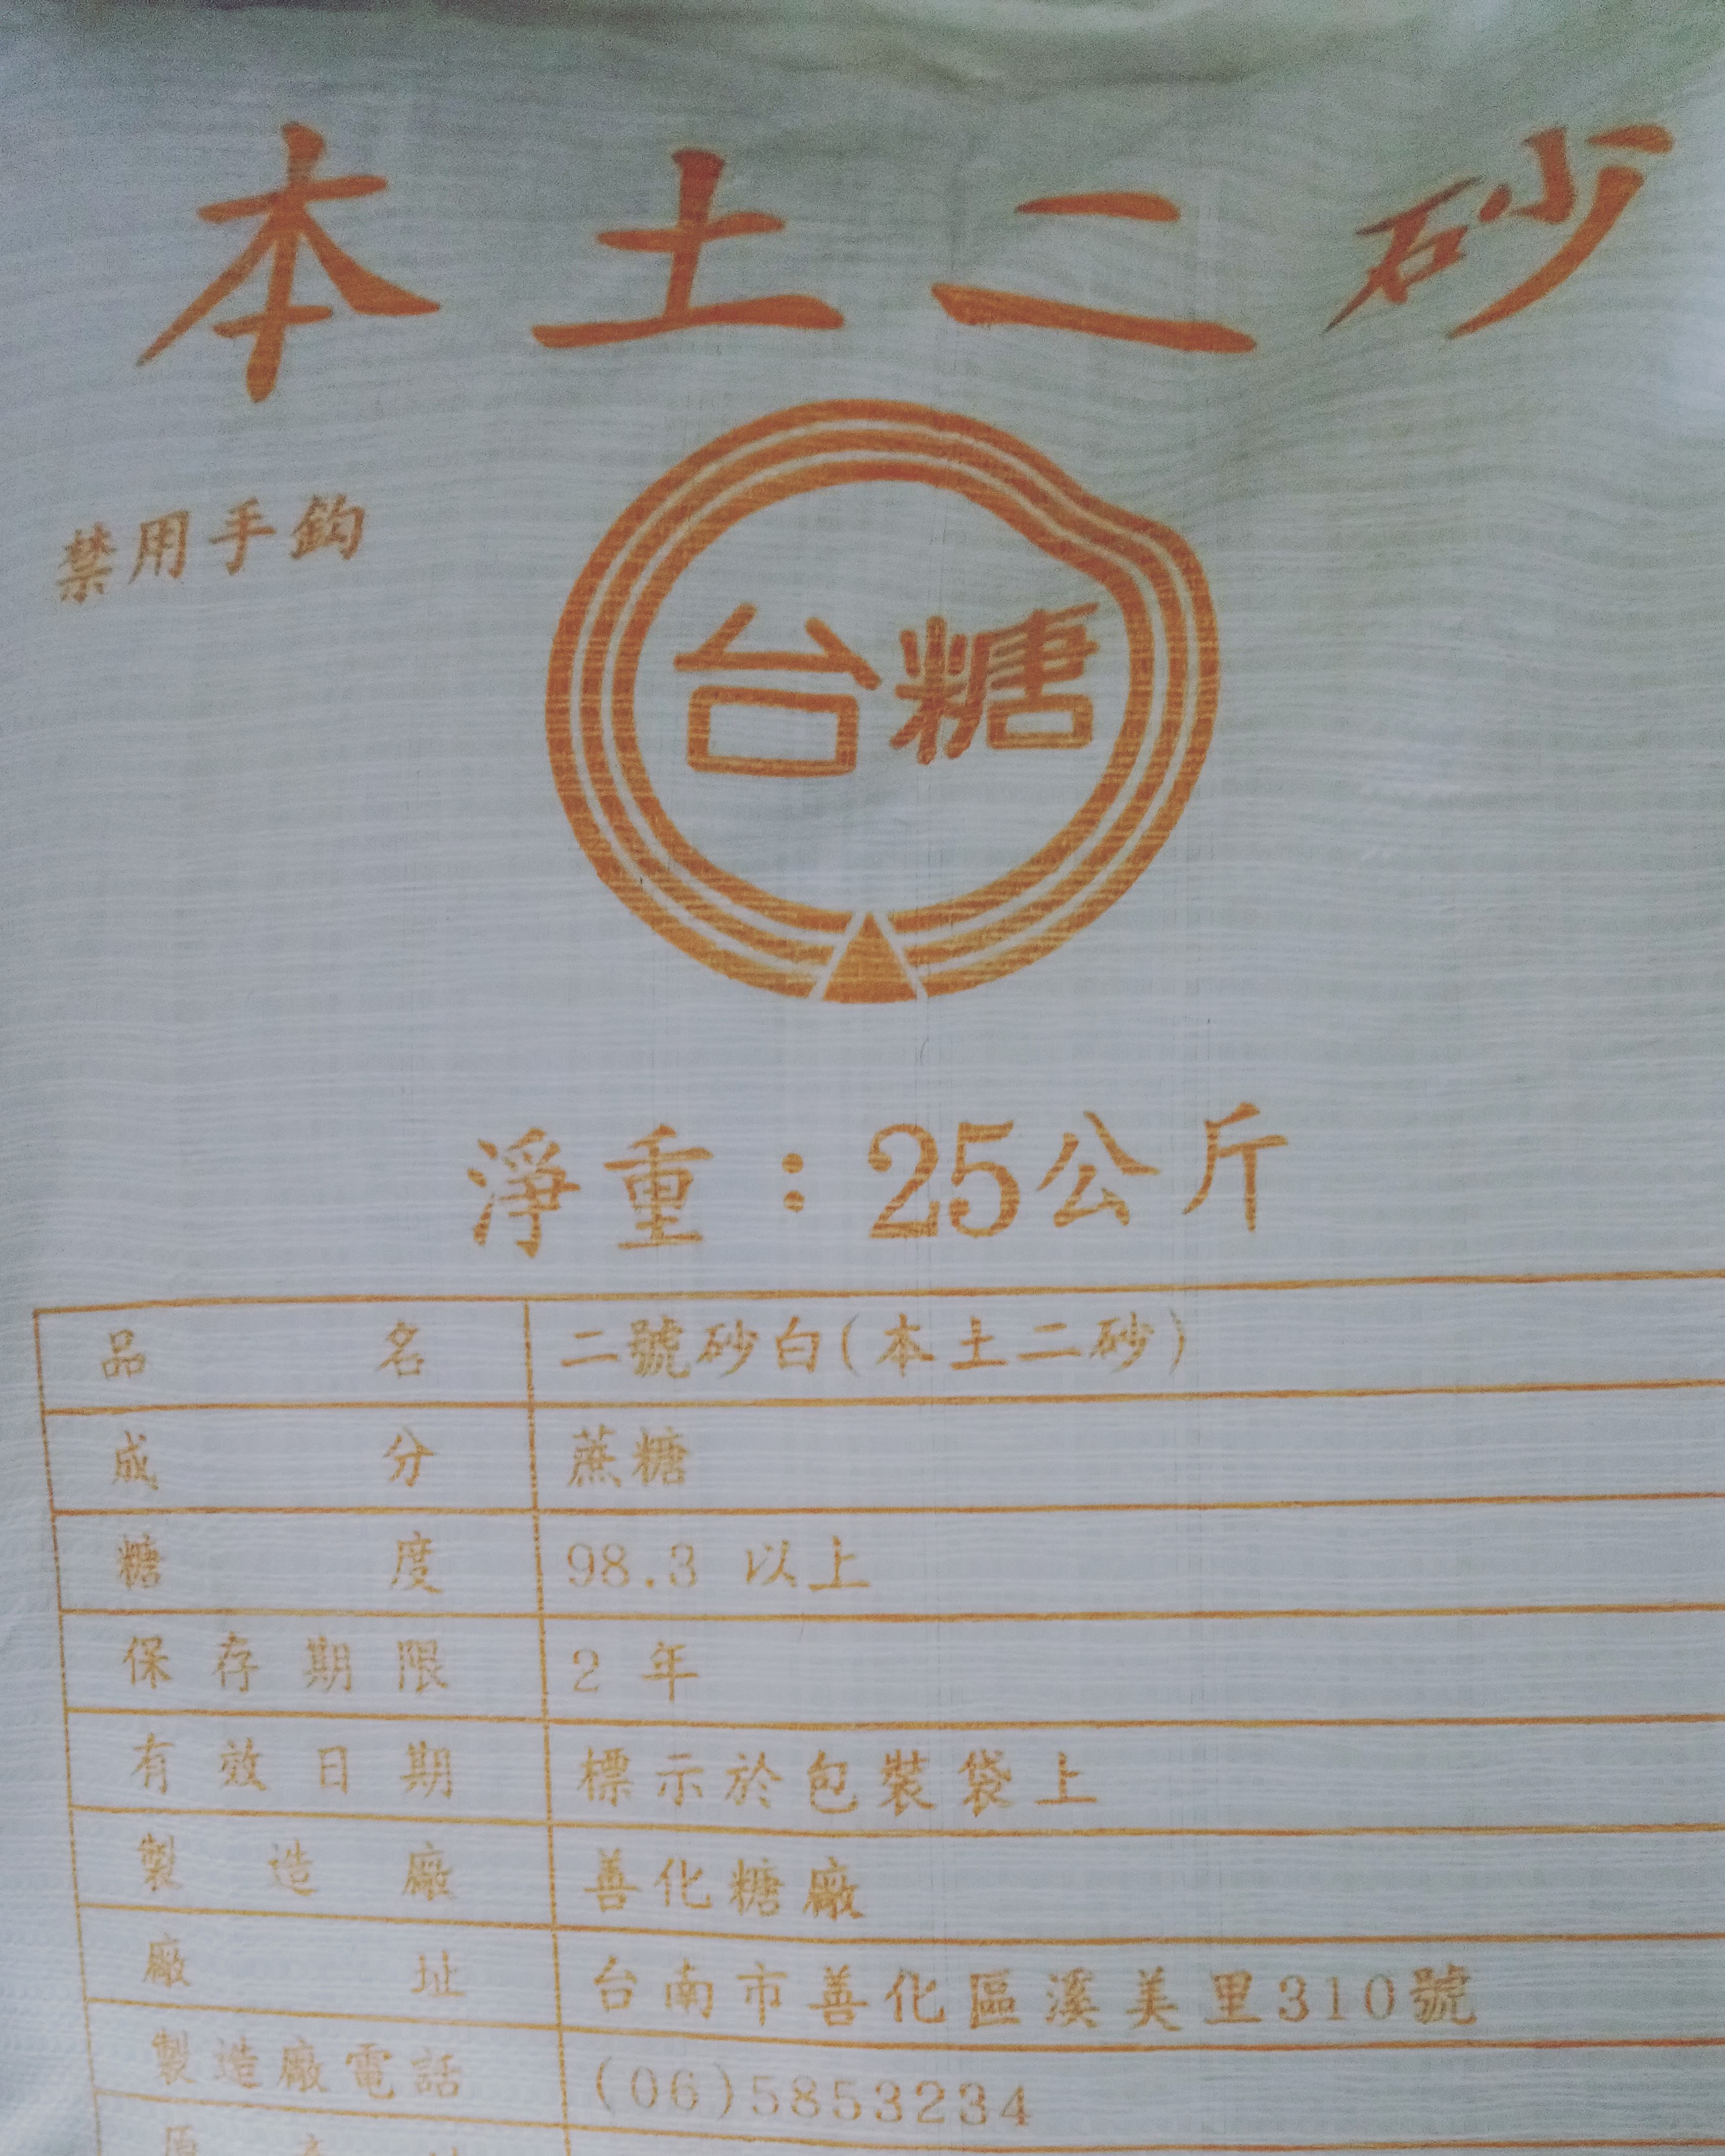 本土二砂
禁用手鈎
台糖
淨重：25公斤
品名 二號砂白(本土二砂)
成分 蔗糖
糖度 98.3 以上
保存期限 2 年
有效日期 標示於包裝袋上
製造廠 善化糖廠
廠址 台南市善化區溪美里310號
製造廠電話 (06)5853234